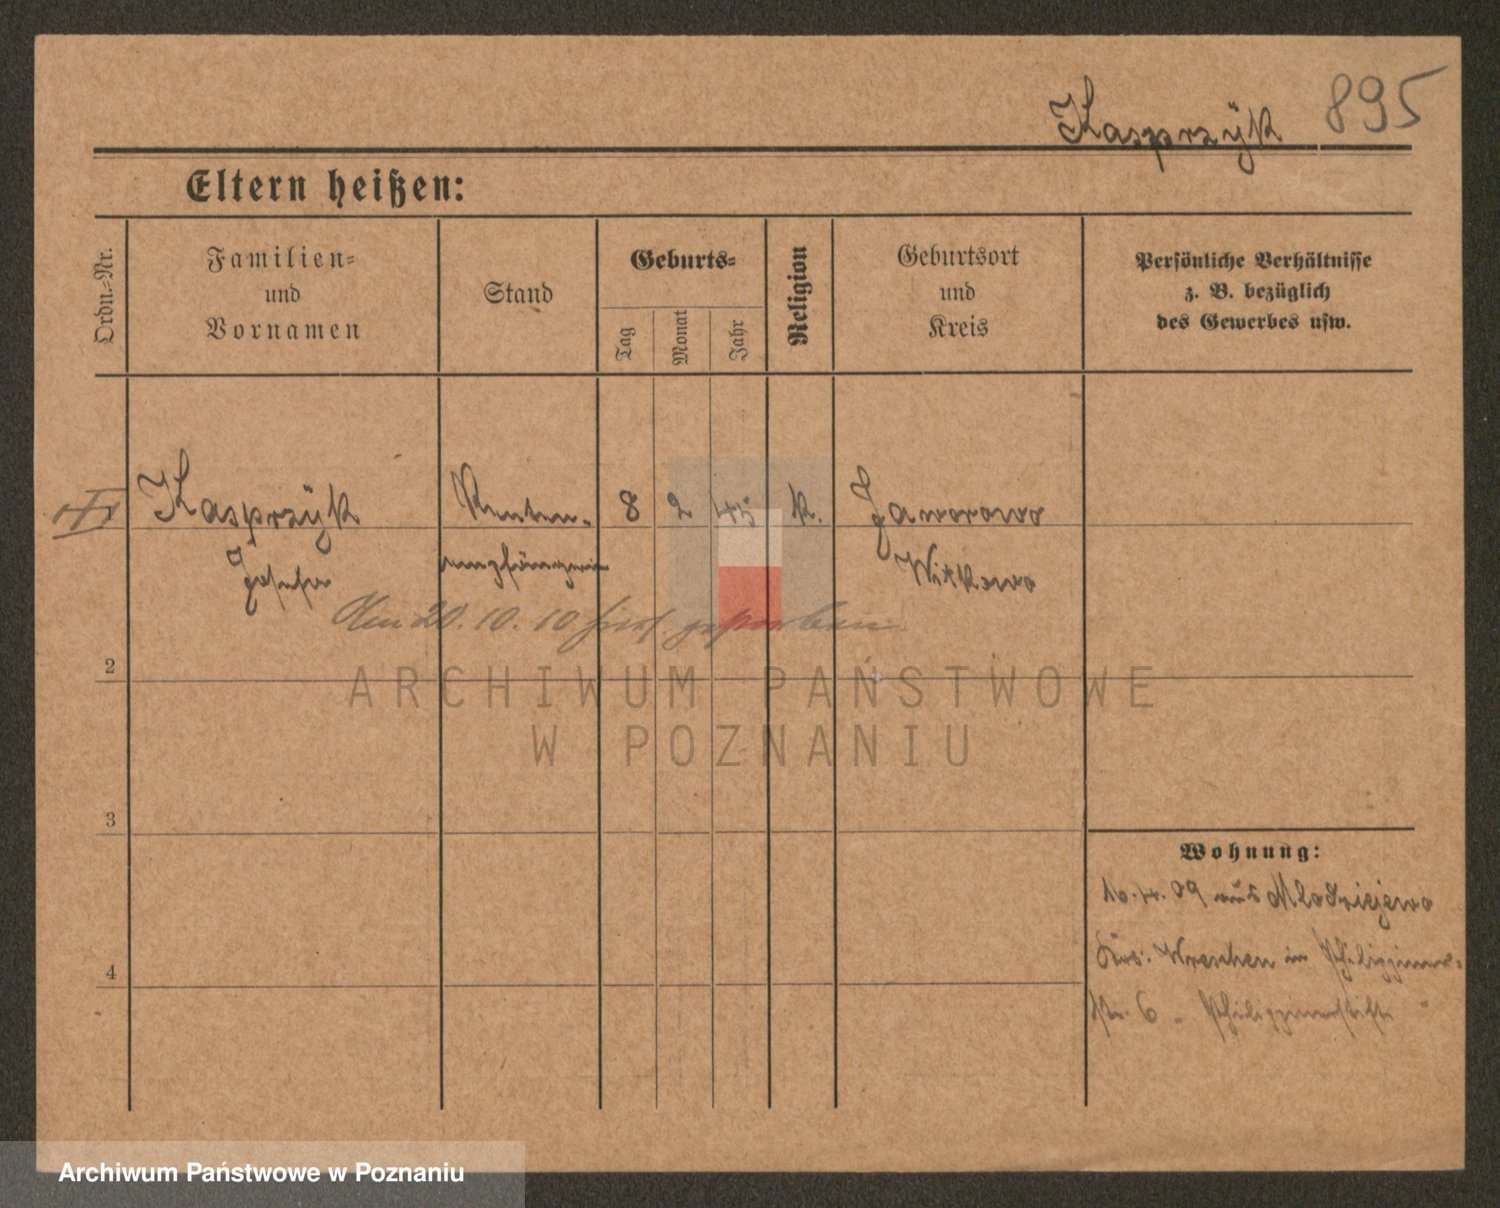 Kasprzÿk 895
Eltern heißen:
Ordn.=Nr.
Familien=
und
Vornamen
Stand
Geburts=
Tag
Monat
Jahr
Religion
Geburtsort
und
Kreis
Persönliche Verhältnisse
z. B. bezüglich
des Gewerbes usw.
Kasprzÿk Renten- 8 2 45 k. Jaworowo
Josefa empfängerin Witkowo
Am 20. 10. 10 hier gestorben
2
3
4
Wohnung:
16.4.09 aus Mlodziejewo
Krs. Wreschen in Philippinen-
str. 6 - Philippinenstift
ARCHIWUM PAŃSTWOWE
W POZNANIU
Archiwum Państwowe w Poznaniu